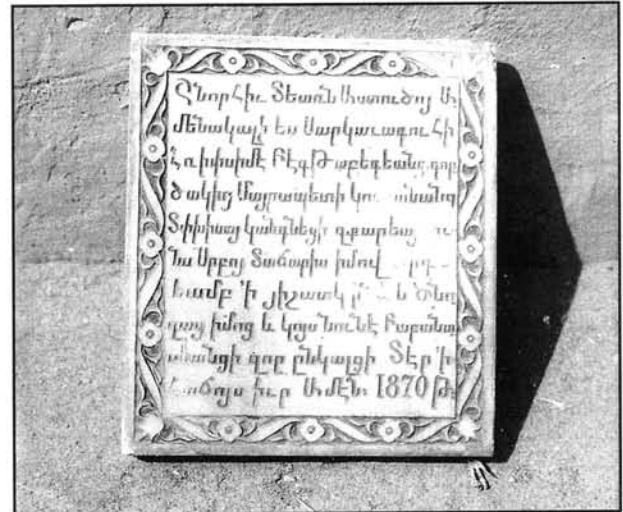 Շնորհիւ Տեառն Աստուծոյ Ա
մենակալի ես Սարկաւագուհի
Հռիփսիմէ Բէգթաբեգեանց գոր
ծակից Մայրապետի կու
Տփխիսայ կանգնեցի զքարեայ
նա Սրբոյ Տաճարիս իմով
եամբ 'ի յիշատակ ծնօ
ղաց իմոց և կոյս Նունէ
զոր ընկալցի Տէր 'ի
հաճոյս իւր Ամէն 1870 Թ: